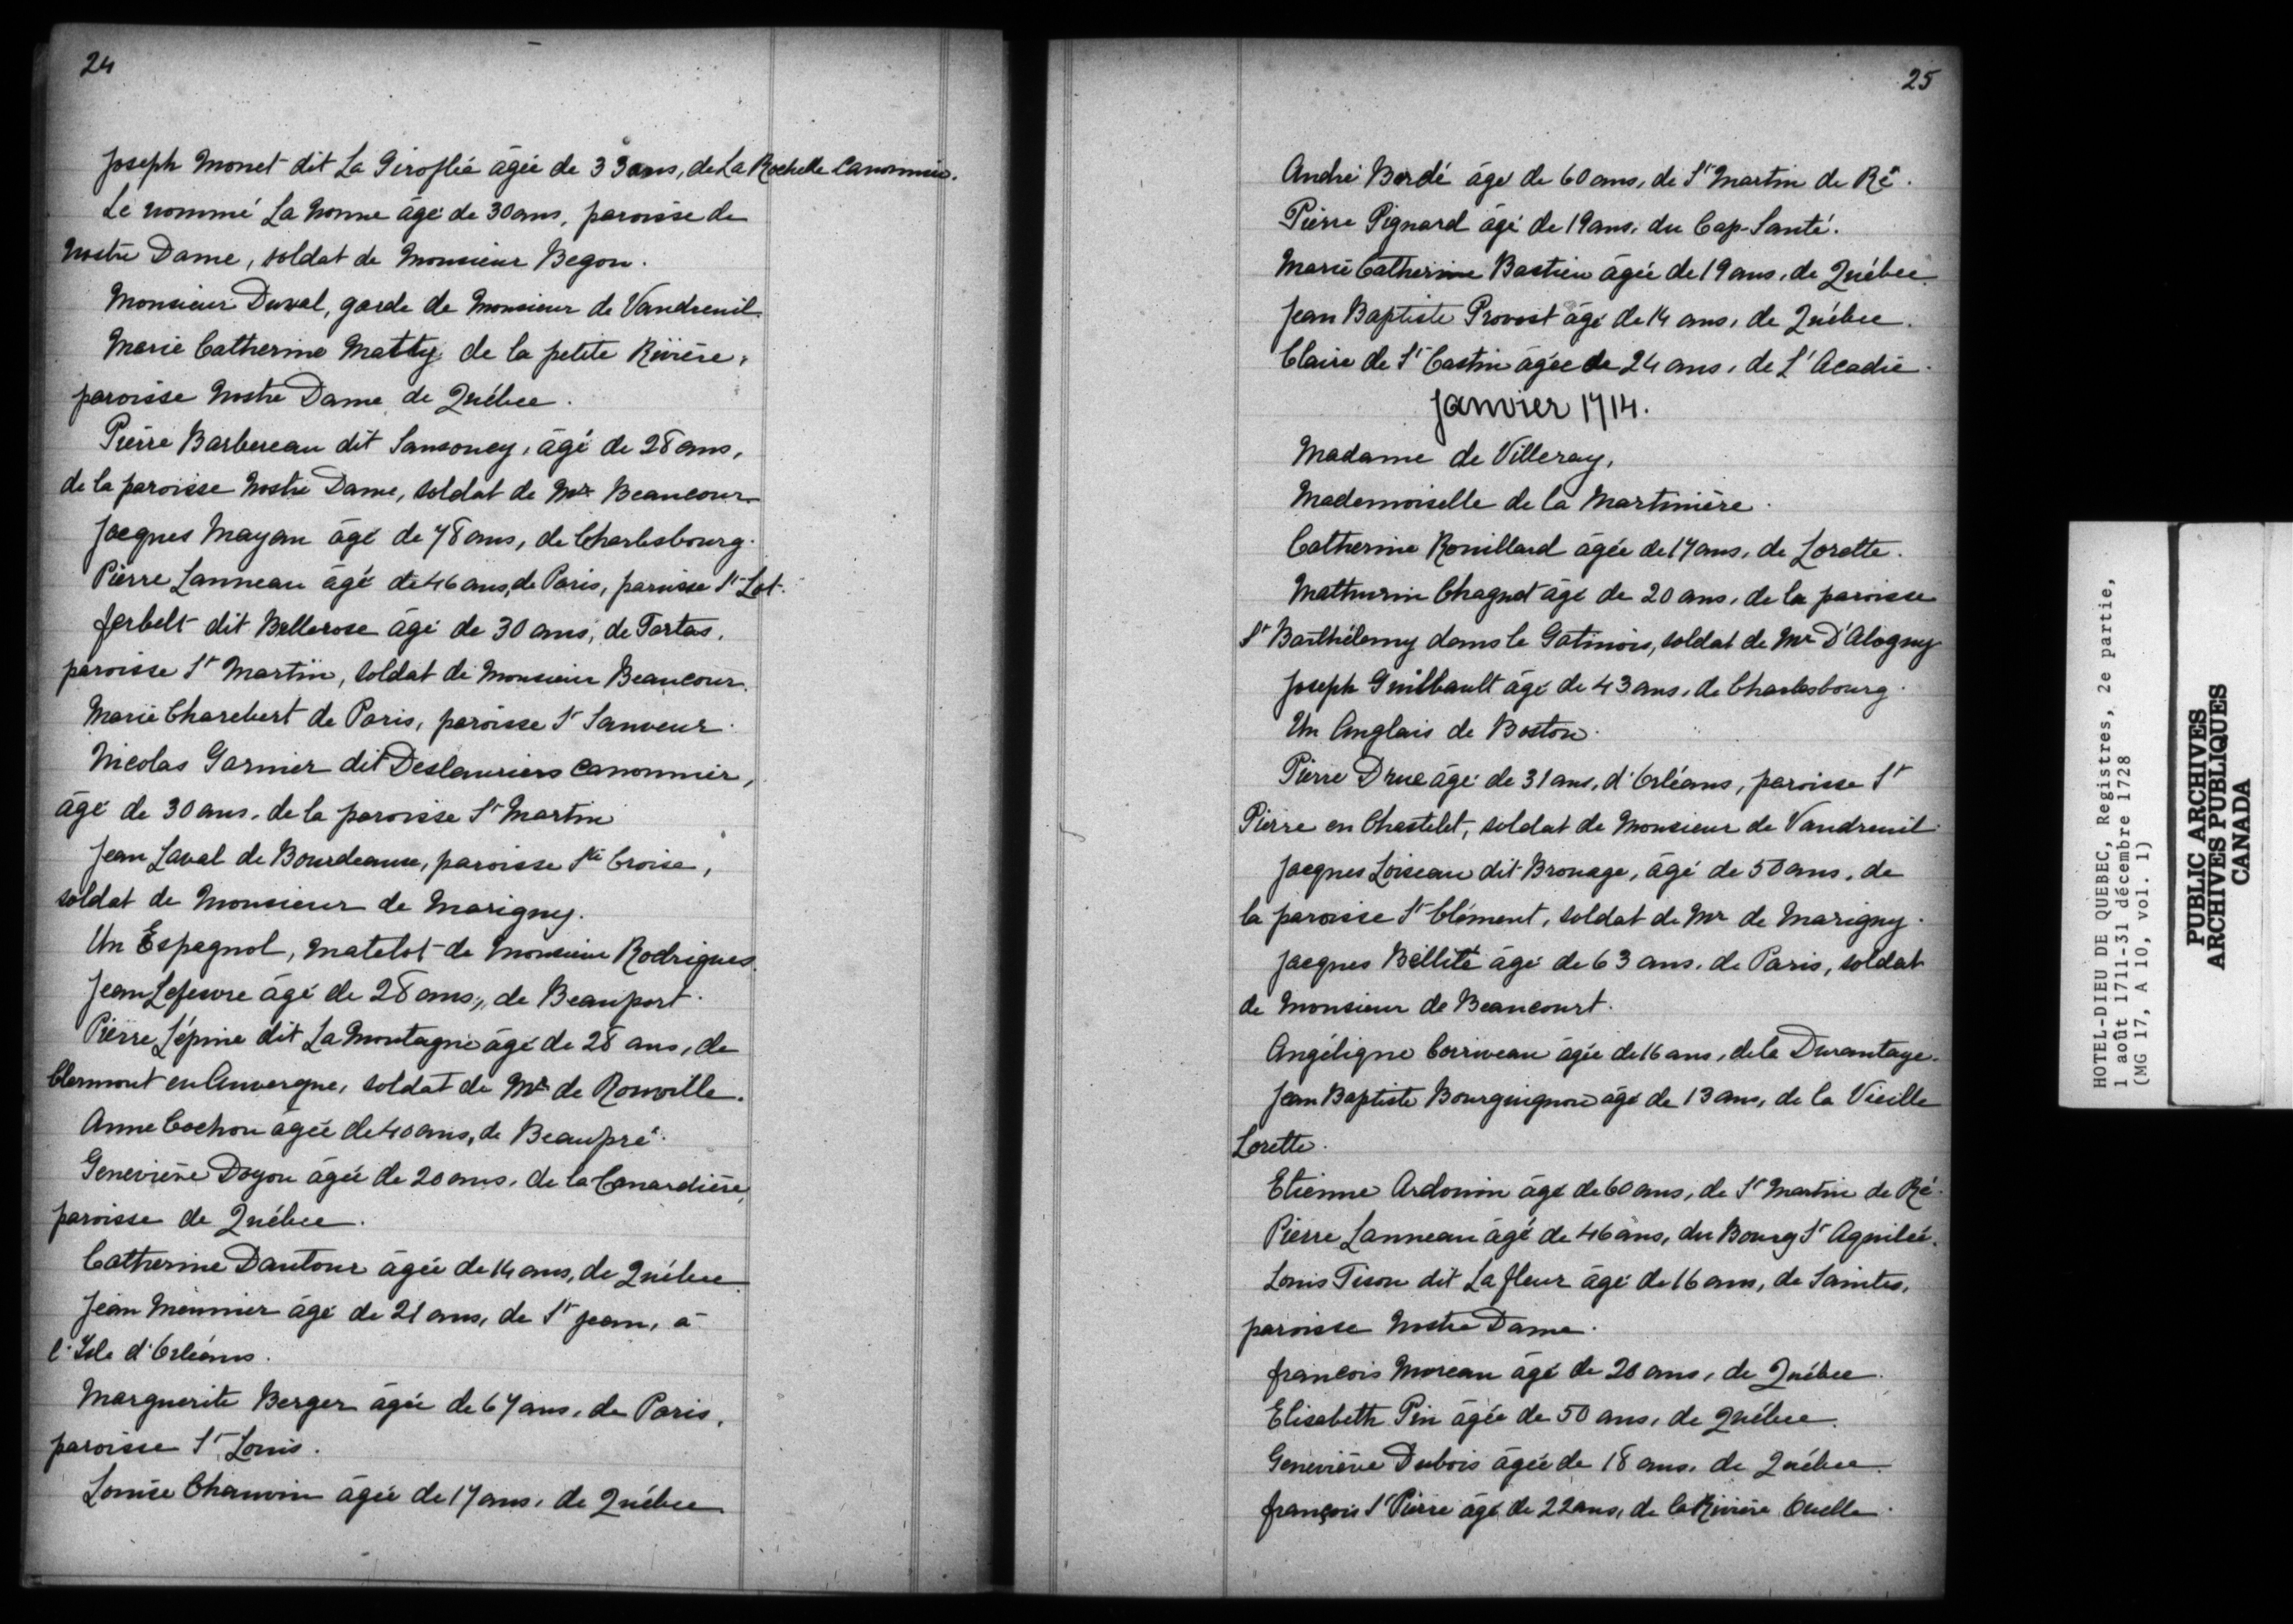 24
Joseph Monet dit La Giroflée âgée de 33 ans, de La Rochelle Canonnier.
Le nommé La Nonne âgé de 30 ans, paroisse de
Nostre Dame, soldat de Monsieur Begon.
Monsieur Duval, garde de Monsieur de Vaudreuil.
Marie Catherine Matty de la petite Rivière,
paroisse Nostre Dame de Québec.
Pierre Barbereau dit Sansoucy, âgé de 28 ans,
de la paroisse Nostre Dame, soldat de Mr Beaucour.
Jacques Mayan âgé de 78 ans, de Charlesbourg.
Pierre Lanneau âgé de 46 ans, de Paris, paroisse St Lot.
Jerbelt dit Bellerose âgé de 30 ans, de Tartas,
paroisse St Martin, soldat de Monsieur Beaucour.
Marie Charebert de Paris, paroisse St Sauveur.
Nicolas Garnier dit Deslauriers canonnier,
âgé de 30 ans, de la paroisse St Martin
Jean Laval de Bourdeaux, paroisse Ste Croise,
soldat de Monsieur de Marigny.
Un Espagnol, matelot de Monsieur Rodrigues.
Jean Lefesvre âgé de 28 ans, de Beauport.
Pierre Lépine dit La Montagne âgé de 28 ans, de
Clermont en Auvergne, soldat de Mr de Rouville.
Anne Cochon âgée de 40 ans, de Beaupré.
Geneviève Doyon âgée de 20 ans, de la Canardière,
paroisse de Québec.
Catherine Dautour âgée de 14 ans, de Québec.
Jean Meunier âgé de 21 ans, de St Jean, à
l'Isle d'Orléans.
Marguerite Berger âgée de 67 ans, de Paris,
paroisse St Louis.
Louise Chauvin âgée de 17 ans, de Québec.
25
André Bordé âgé de 60 ans, de St Martin de Ré.
Pierre Pignard âgé de 19 ans, du Cap-Santé.
Marie Catherine Bastien âgée de 19 ans, de Québec.
Jean Baptiste Provost âgé de 14 ans, de Québec.
Claire de St Castin âgée de 24 ans, de L'Acadie.
Janvier 1714.
Madame de Villeray,
Mademoiselle de la Martinière.
Catherine Rouillard âgée de 17 ans, de Lorette.
Mathurin Chagnet âgé de 20 ans, de la paroisse
St Barthélemy dans le Gatinois, soldat de Mr D'Alogny
Joseph Guilbault âgé de 43 ans, de Charlesbourg.
Un Anglais de Boston.
Pierre Drue âgé de 31 ans, d'Orléans, paroisse St
Pierre en Chastelet, soldat de Monsieur de Vaudreuil.
Jacques Loiseau dit Brouage, âgé de 50 ans, de
la paroisse St Clément, soldat de Mr de Marigny.
Jacques Bellité âgé de 63 ans, de Paris, soldat
de Monsieur de Beaucourt.
Angélique Corriveau âgée de 16 ans, de la Durantaye.
Jean Baptiste Bourguignon âgé de 13 ans, de la Vieille
Lorette.
Etienne Ardouin âgé de 60 ans, de St Martin de Ré.
Pierre Lanneau âgé de 46 ans, du Bourg St Aquilée.
Louis Tison dit La fleur âgé de 16 ans, de Saintes,
paroisse Nostre Dame.
francois Moreau âgé de 20 ans, de Québec.
Elisabeth Pin âgée de 50 ans, de Québec.
Geneviève Dubois âgée de 18 ans, de Québec.
françois St Pierre âgé de 22 ans, de la Rivière Ouelle.
HOTEL-DIEU DE QUEBEC, Registres, 2e partie,
1 août 1711-31 décembre 1728
(MG 17, A 10, vol. 1)
PUBLIC ARCHIVES
ARCHIVES PUBLIQUES
CANADA